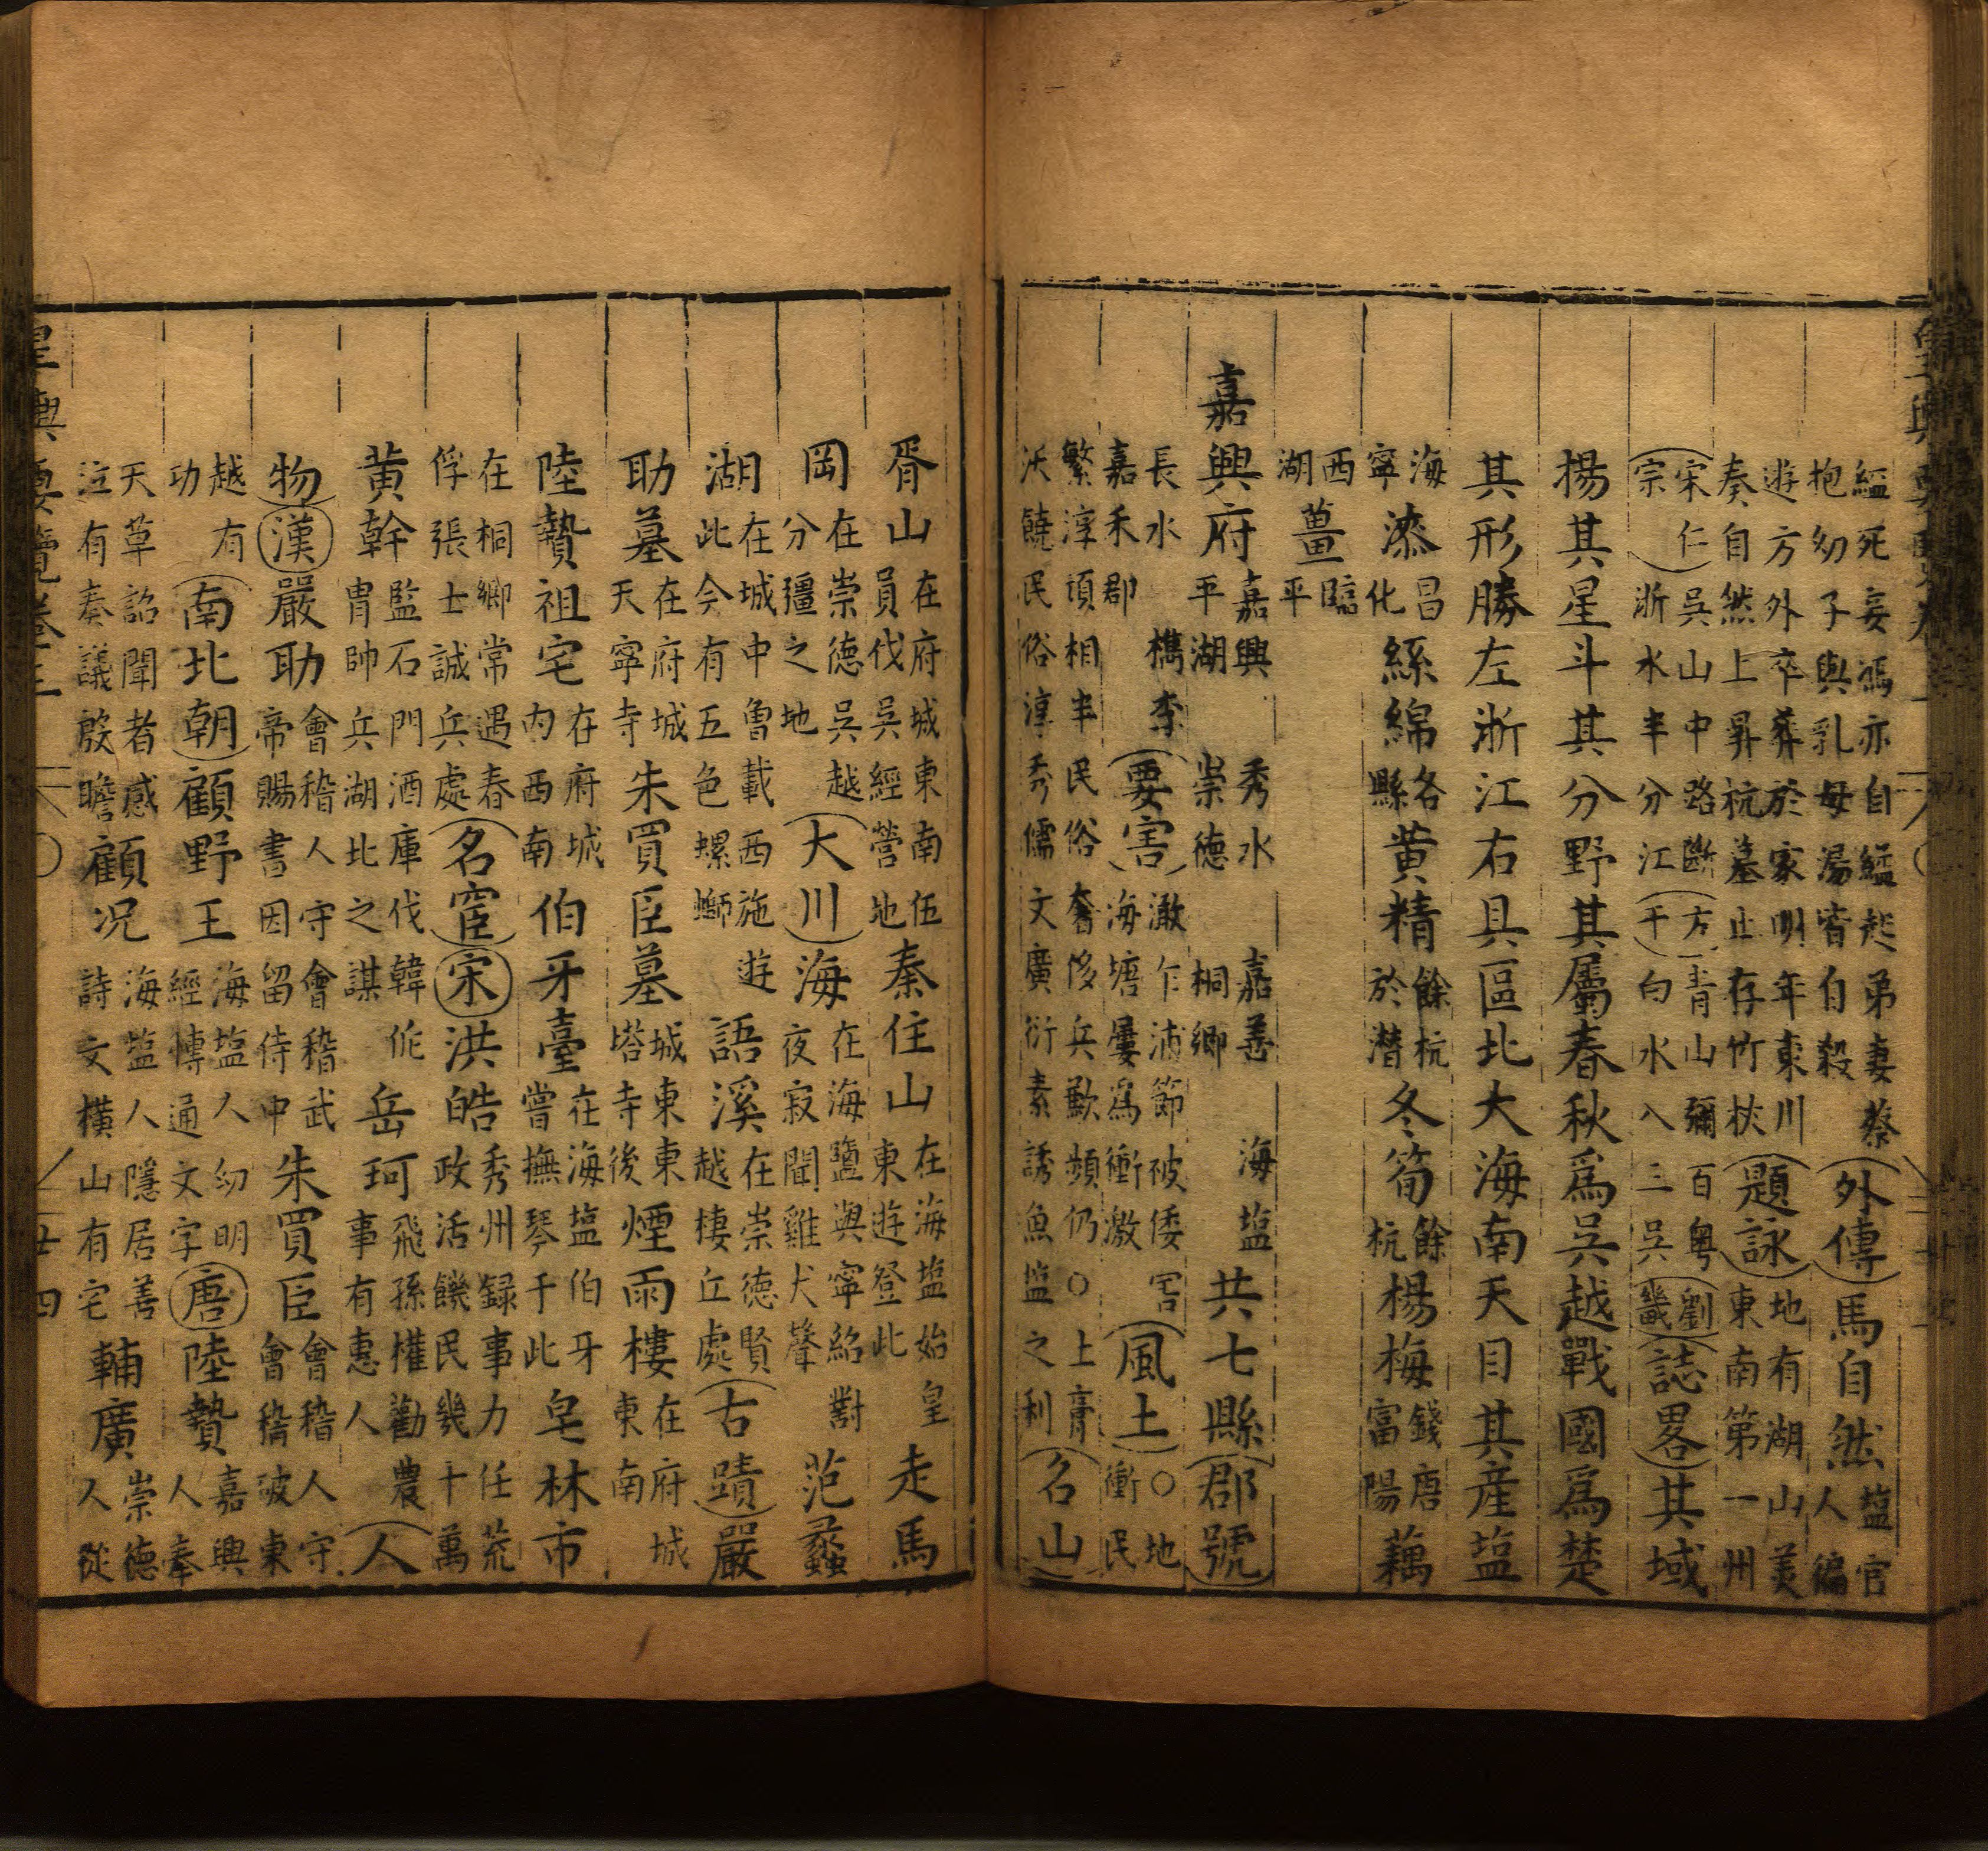 縊死妾馮亦自縊起弟妻蔡
抱幼子與乳母湯皆自殺
外傳
馬自然
塩官人徧
遊方外卒葬於家明年東川
奏自然上昇杭墓止存竹杖
題詠
地有湖山美
東南第一州
宋仁宗
吳山中路斷
浙水半分江
方干
青山彌百粤
白水八三吳
劉畿
誌畧
其域
揚其星斗其分野其屬春秋爲吳越戰國爲楚
其形勝左浙江右具區北大海南天目其產塩
海寧
漆
昌化
絲綿
各縣
黄精
餘杭
於潛
冬筍
餘杭
楊梅
錢唐
富陽
藕
西湖
薑
臨平
嘉興府
嘉興 秀水 嘉善 海塩
平湖 崇德 桐鄉
共七縣
郡號
長水 檇李
嘉禾郡
要害
澉乍浦節被倭害
海塘屢爲衝激
風土
○地
衝民
繁淳頑相半民俗奢侈兵歉頻仍○上膏
沃饒民俗淳秀儒文廣衍素誘魚塩之利
名山
胥山
在府城東南伍
員伐吳經營地
秦住山
在海塩始皇
東遊登此
走馬
岡
在崇德吳越
分疆之地
大川
海
在海鹽與寧紹對
夜寂聞雞犬聲
范蠡
湖
在城中曾載西施遊
此今有五色螺螄
語溪
在崇德賢
越棲丘處
古蹟
嚴
助墓
在府城
天寧寺
朱買臣墓
城東東
塔寺後
煙雨樓
在府城
東南
陸贄祖宅
在府城
内西南
伯牙臺
在海塩伯牙
嘗撫琴于此
皂林市
在桐鄉常遇春
俘張士誠兵處
名宦
宋
洪皓
秀州録事力任荒
政活饑民幾十萬
黄幹
監石門酒庫伐韓侂
胄帥兵湖北之謀
岳珂
飛孫權勸農
事有惠人
人
物
漢
嚴助
會稽人守會稽武
帝賜書因留侍中
朱買臣
會稽人守
會稽破東
越有
功
南北朝
顧野王
海塩人幼明
經傳通文字
唐
陸贄
嘉興
人奉
天草詔聞者感
泣有奏議殷瞻
顧况
海塩人隱居善
詩文橫山有宅
輔廣
崇德
人從
皇輿要覽卷三
廿四